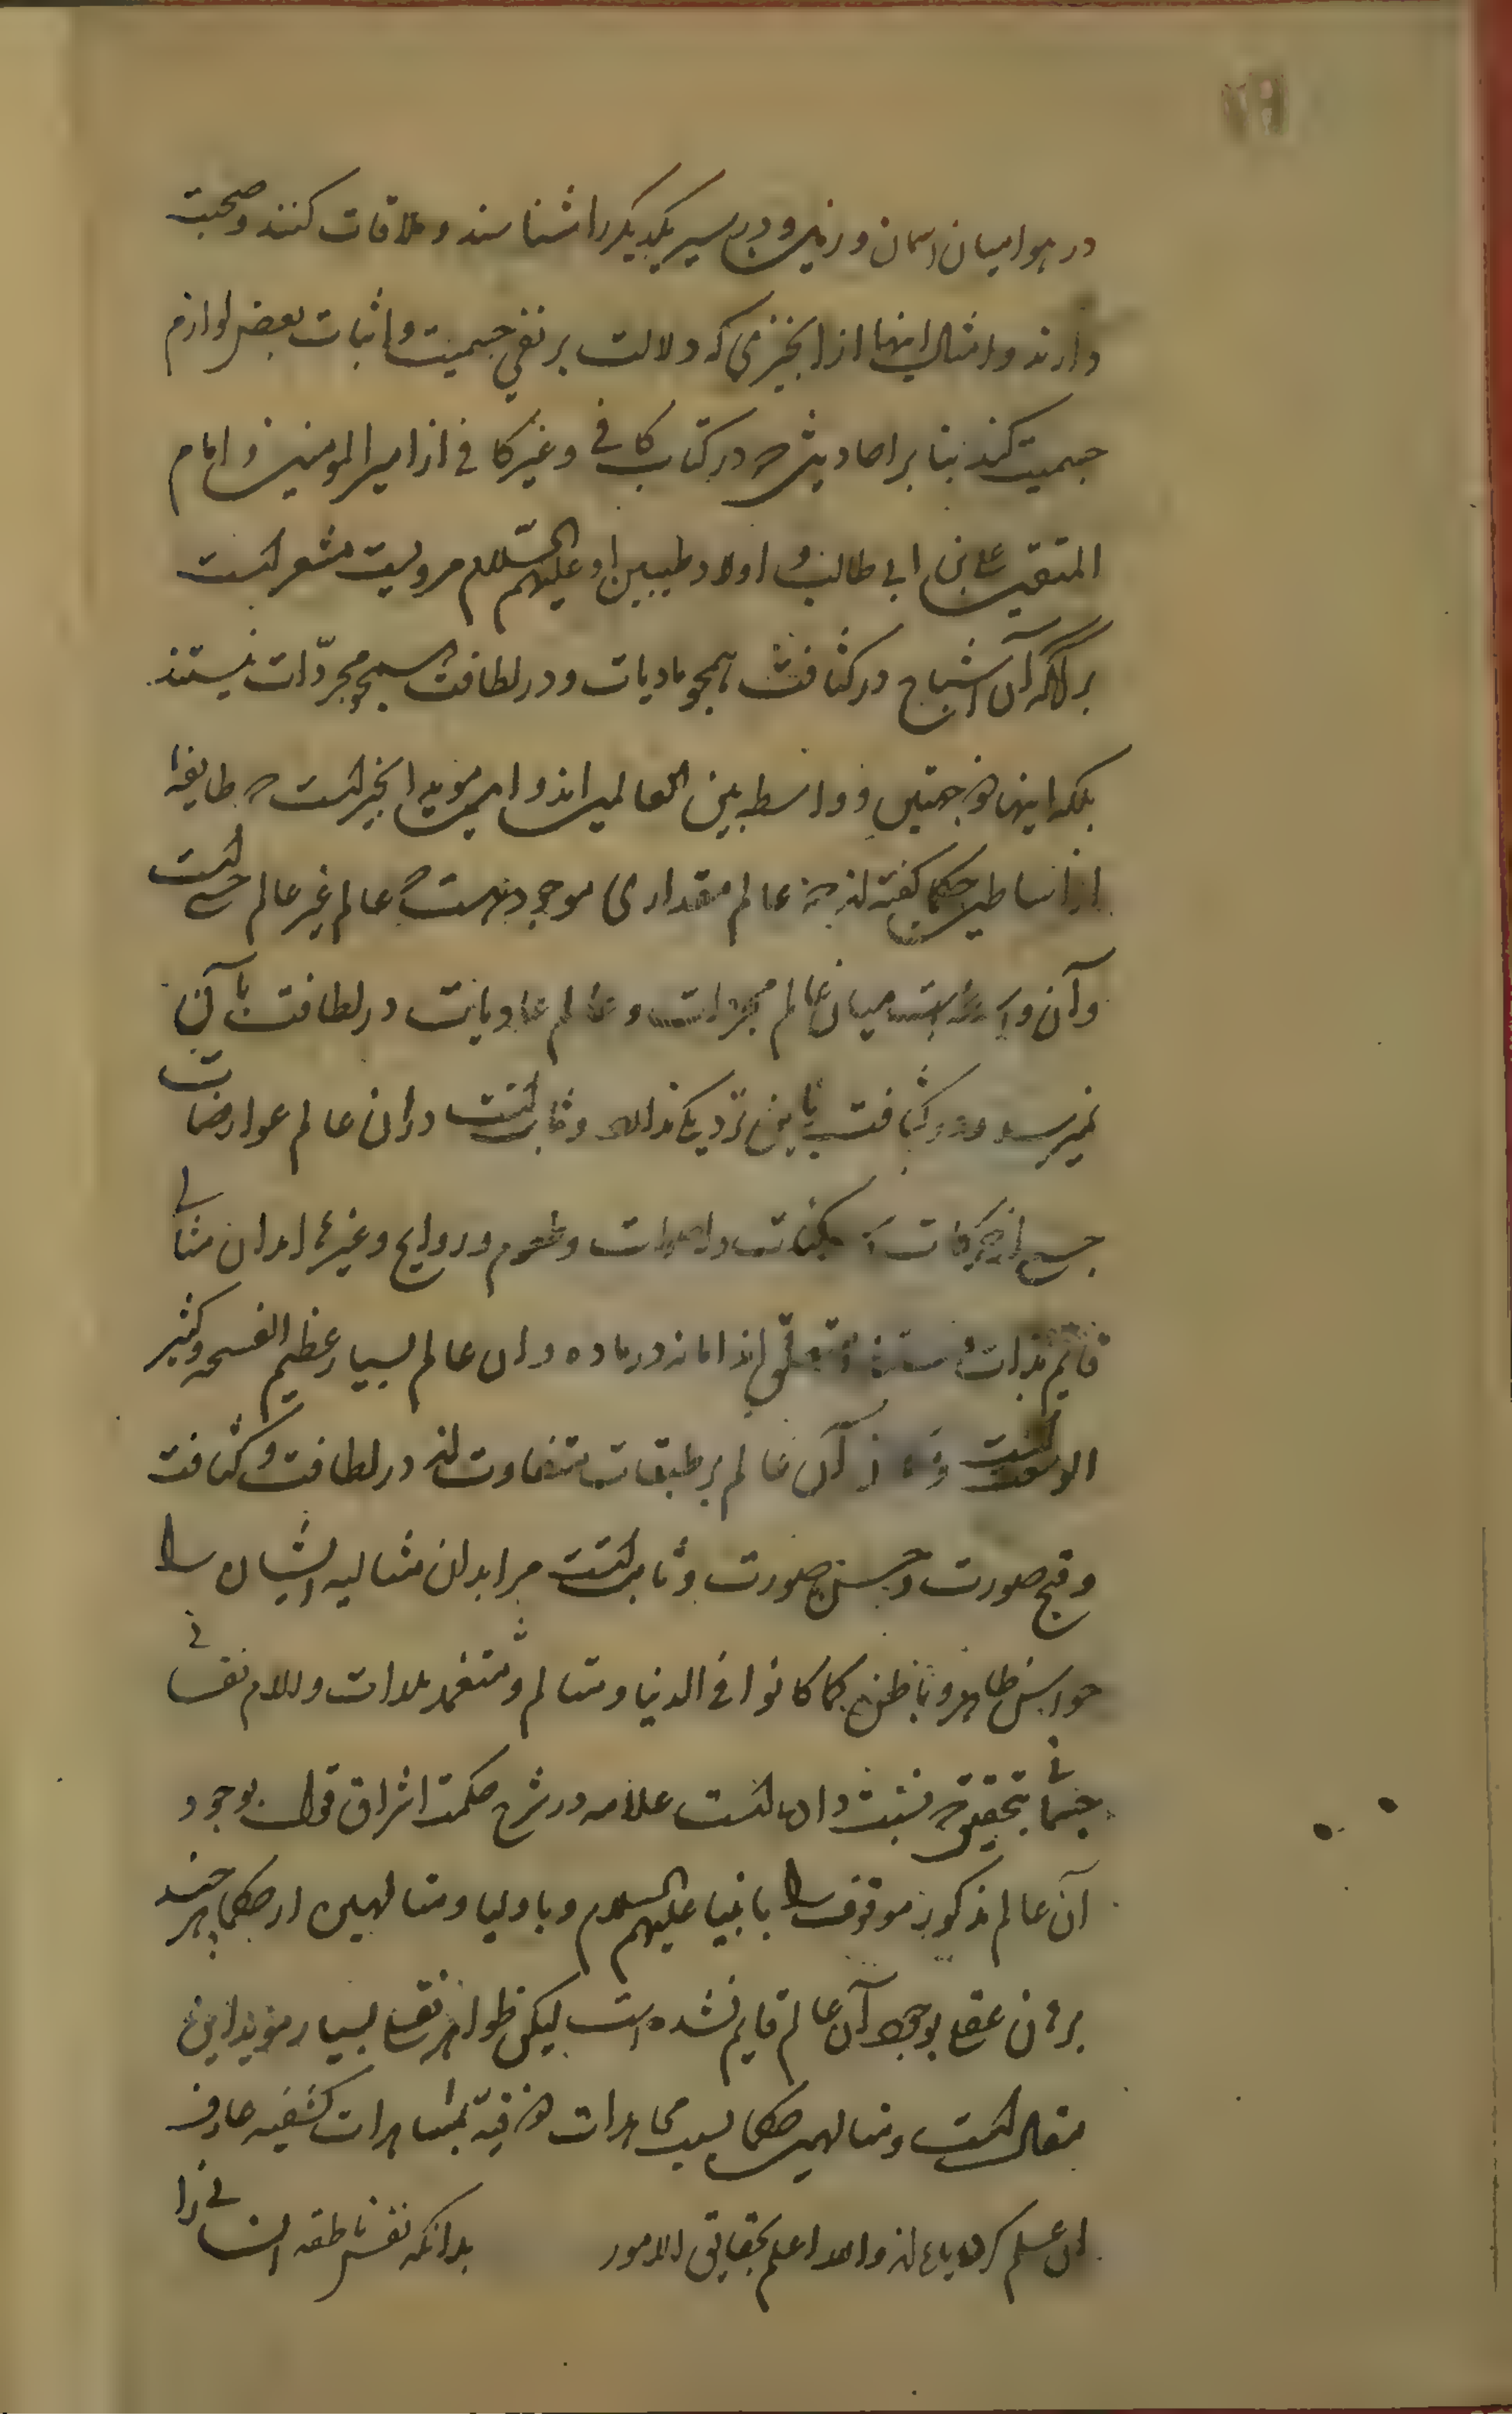 در هوا میان اسمان و زمین و در سیر یکدیگر را شناسند و ملاقات کنند و صحبت
دارند و امثال اینها از انچیزی که دلالت بر نفی جسمیت و اثبات بعض لوازم
جسمیت کند بنا بر احادیثی که در کتاب کافی و غیر کافی از امیر المومنین و امام
المتقین علی بن ابی طالب و اولاد طیبین او علیهم السّلام مرویست مشعر است
بر انکه آن اشباح در کثافت همچو مادیات و در لطافت همچو مجرّدات نیستند
بلکه اینها ذو جهتین و واسطه بین العالمین اند و این موید انچیز است که طایفهٔ
از اساطین حکما گفته اند که عالم مقداری موجود است که عالم غیر عالم حسی است
و آن واسطه است میان عالم مجردات و عالم مادیات در لطافت بآن
نمیرسد و در کثافت باین نزدیک نداند و ثابت است در ان عالم عوارضات
جسم از حرکات و سکنات و اصوات و طعوم و روایح و غیرها ابدان مثالی
قایم بذات متعلق اند اما نه در ماده و ان عالم بسیار عظیم الفسحه و کثیر
الوسعت است و آن عالم بر طبقات متفاوت اند در لطافت و کثافت
و قبح صورت و حسن صورت و ثابت است مر ابدان مثالیه ایشان را
حواس ظاهر و باطن کما کانوا فی الدنیا و متالم و متنعم بلذات و الام نفسانی
جسمانی بتحقیق که نسبت داده است علامه در شرح حکمت اشراق قول بوجود
آن عالم مذکور موقوف را بانبیا علیهم السلام و باولیا و متالهین از حکما هر چند
برهان عقلی بوجود آن عالم قایم نشده است لیکن ظواهر نقل بسیار موید این
مقال است و متالهین حکما بسبب مجاهدات ذوقیّه بمشاهدات کشفیه عارف
ان علم کردیده اند والله اعلم بحقایق الامور بدانکه نفس ناطقه انسانی را